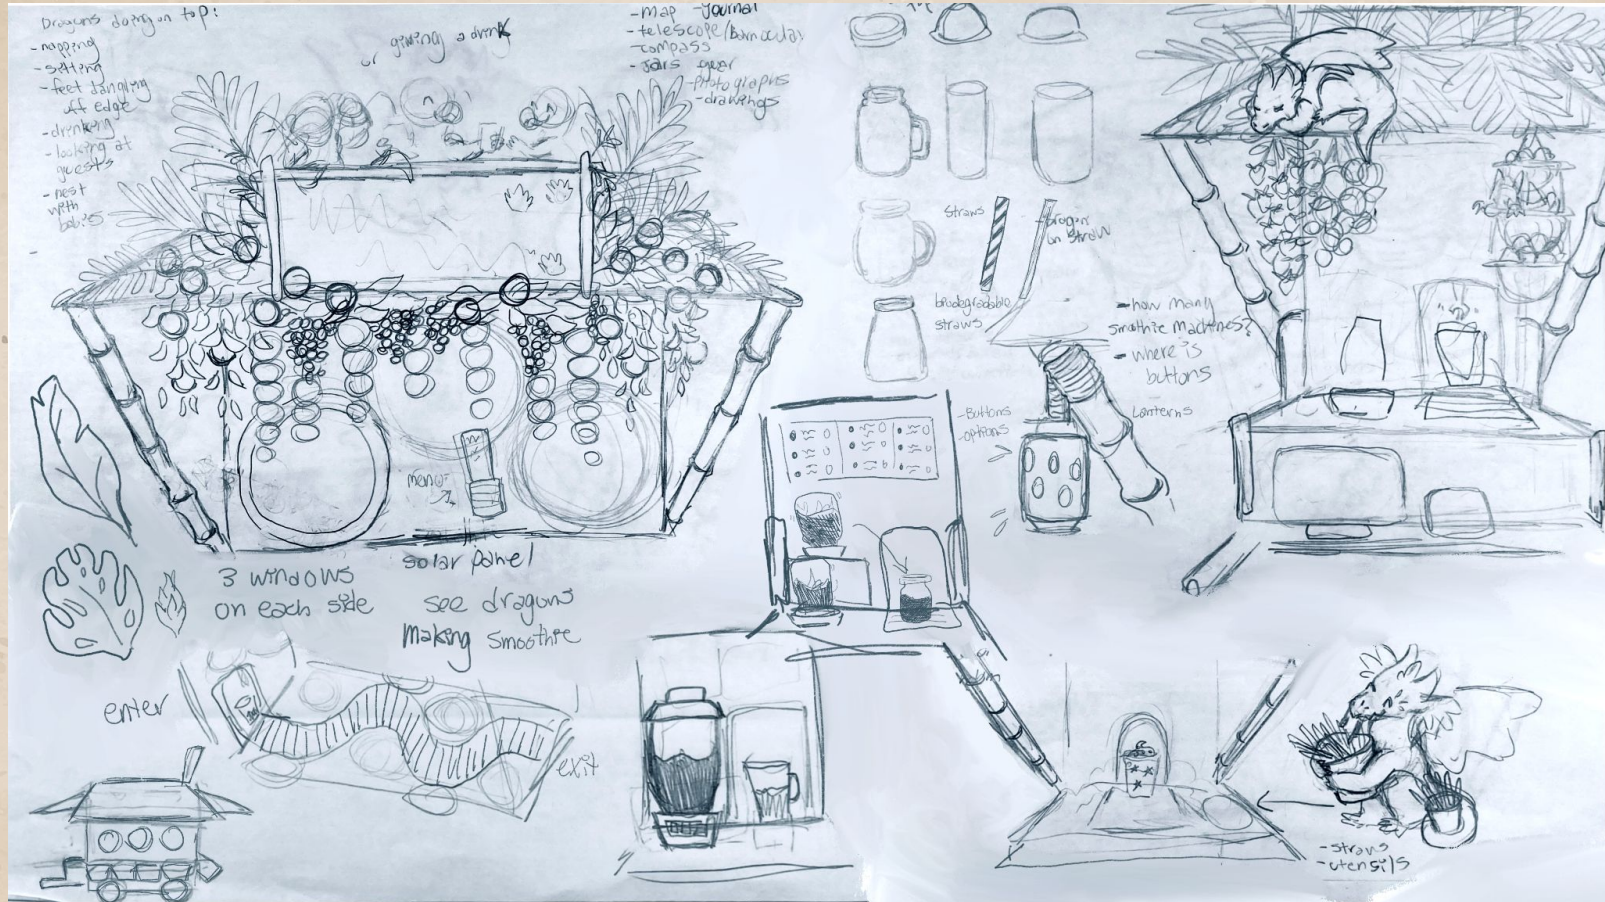 Dragons doing on top:
- napping
- sitting
- feet dangling
off edge
- drinking
- looking at
guests
- nest
with
babies
giving a drink
- map - Journal
- telescope/
- compass
- Jars gear
- photographs
- drawings
straws
dragon
on straw
biodegradable
straws
- how many
smoothie machines?
- where is
buttons
Lanterns
- Buttons
- options
menu
3 windows
on each side
solar panel
see dragons
making smoothie
enter
exit
- straws
- utensils